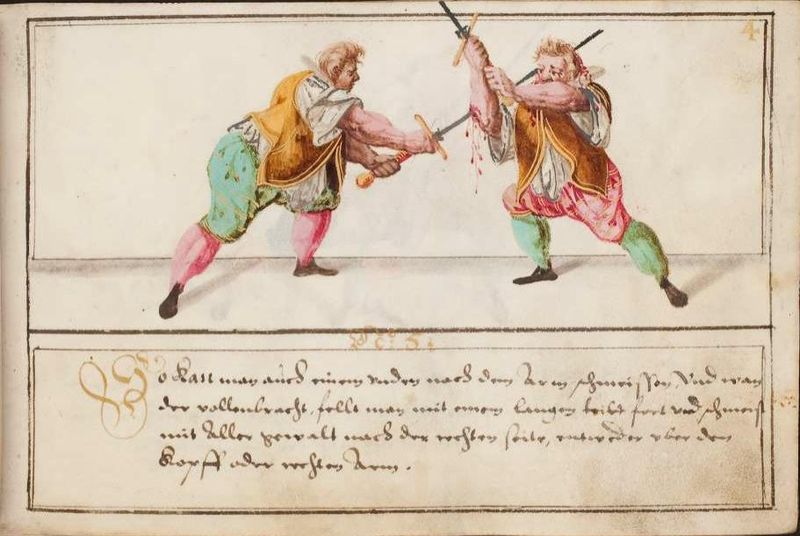 4
No. 5.
So kan man auch einem unden nach dem Arm schmeissen, Und wan
der vollenbracht, fellt man mit einem langen leib fort und schmeist
mit Aller gewalt nach der rechten seite, entweder uber den
Kopff oder rechten Arm.